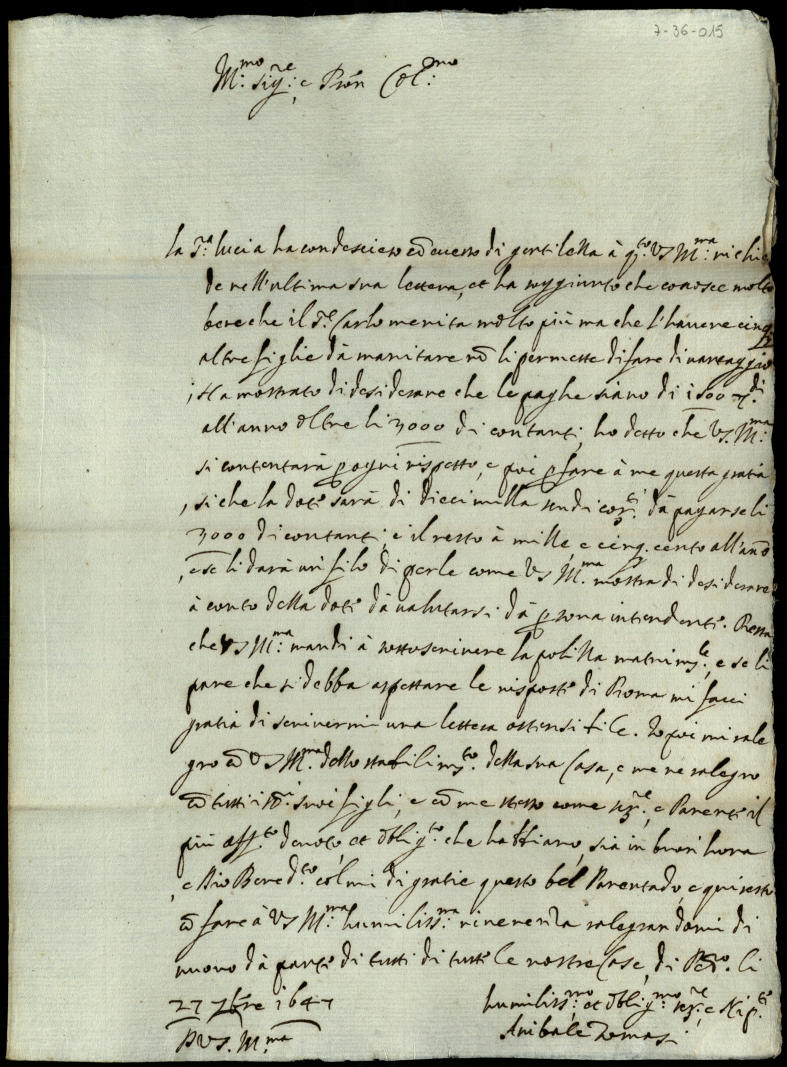 7-36-015
M:mo sig:re e Pron Col:mo
la S.ra lucia ha condescieso cō eccesso di gentilezza à q.to VS M:ma richie
de nell'ultima sua lettera, et ha soggiunto che conosce molto
bene che il S.r Carlo merita molto più ma che l'havere cinq
altre figlie dà maritare nō li permette di fare di vantaggio
; Ha mostrato di desiderare che le paghe siano di 1500 di
all'anno oltre li 3000 di contanti, ho detto che VS. M:ma
si contentarà p ogni rispetto, e poi p fare à me questa gratia
, si che la dote sarà di diecimilla scudi cor:ti dà pagarseli
3000 di contanti, e il resto à mille, e cinq. cento all'anō
, e se li darà un filo di perle come VS M:ma mostra di desiderare
à conto della dote dà valutarsi dà psona intendente. Resta
che VS M:ma mandi à sottoscrivere la polizza matrim:le, e se li
pare che si debba aspettare le risposte di Roma mi facci
gratia di scrivermi una lettera ostensibile. Io poi mi rale
gro cō VS M:ma dello stabilim:to della sua Casa, e me ne ralegro
cō tutti i suoi figli, e cō me stesso come ser:re, e Parente il
più aff:to devoto, et oblig:to che habbiano, sia in buon'hora
, e Dio Bened:to colmi di gratie questo bel Parentado, e qui resto
cō fare à VS M:ma humiliss:ma riverenza ralegrandomi di
nuovo dà parte di tutti di tutte le nostre Case, di li
27 7bre 1647
humiliss:mo et oblig:mo ser:re e Nip:te
D VS. M:ma
Anibale